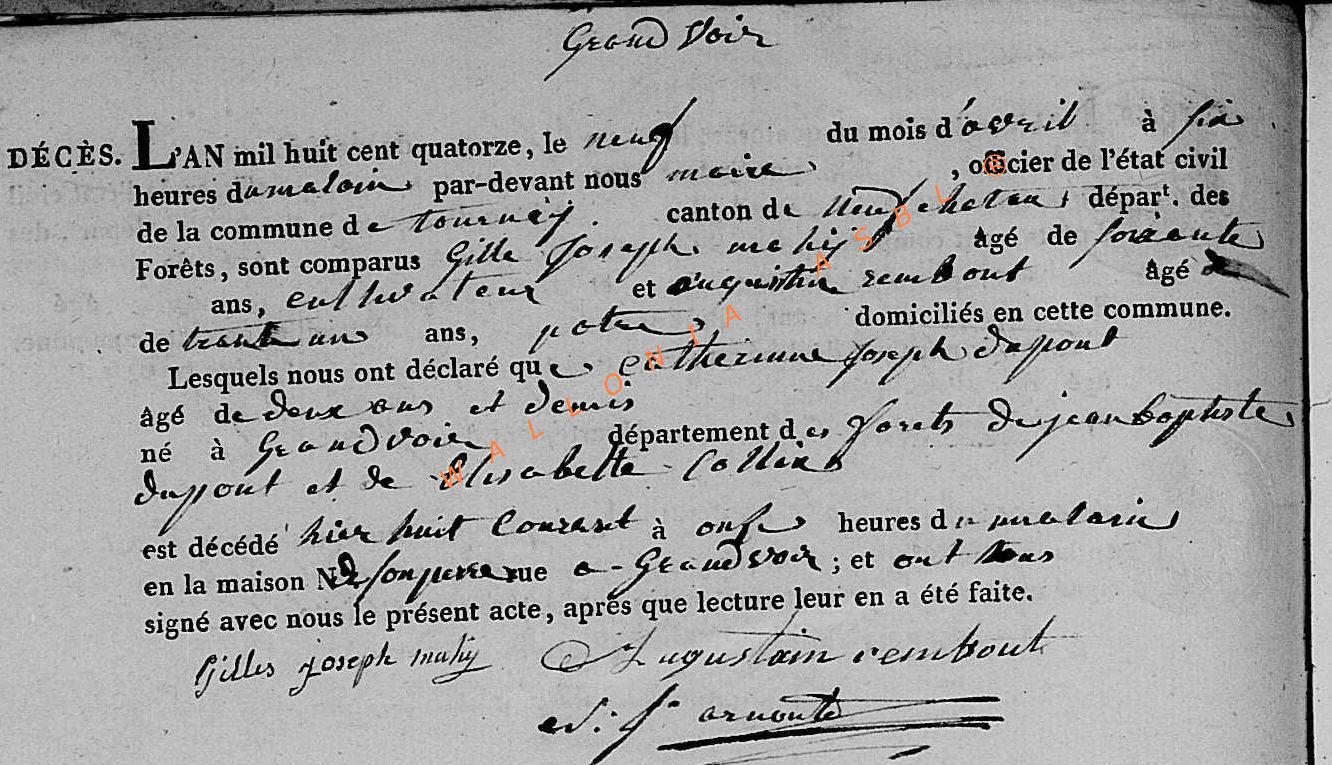 Grand Voir
DÉCÈS. L'AN mil huit cent quatorze, le neuf du mois d'avril à six
heures du matain par-devant nous maire , officier de l'état civil
de la commune de tournay . canton de Neufchatau , départ. des
Forêts, sont comparus Gille Joseph mahy âgé de soixante
ans, cultivateur et augustin rembout âgé
de trante un ans, patre domiciliés en cette commune.
Lesquels nous ont déclaré que catherinne joseph dupont
âgé de deux ans et demis
né à Grandvoir département des forets de jean baptiste
dupont et de Elisabette Collin
est décédé hier huit Courant à onse heures du matain
en la maison de son pere rue a Grandvoir ; et ont tous
signé avec nous le présent acte, aprés que lecture leur en a été faite.
Gilles joseph mahy Augustain rembout
arnould
WALLONIA ASBL ©